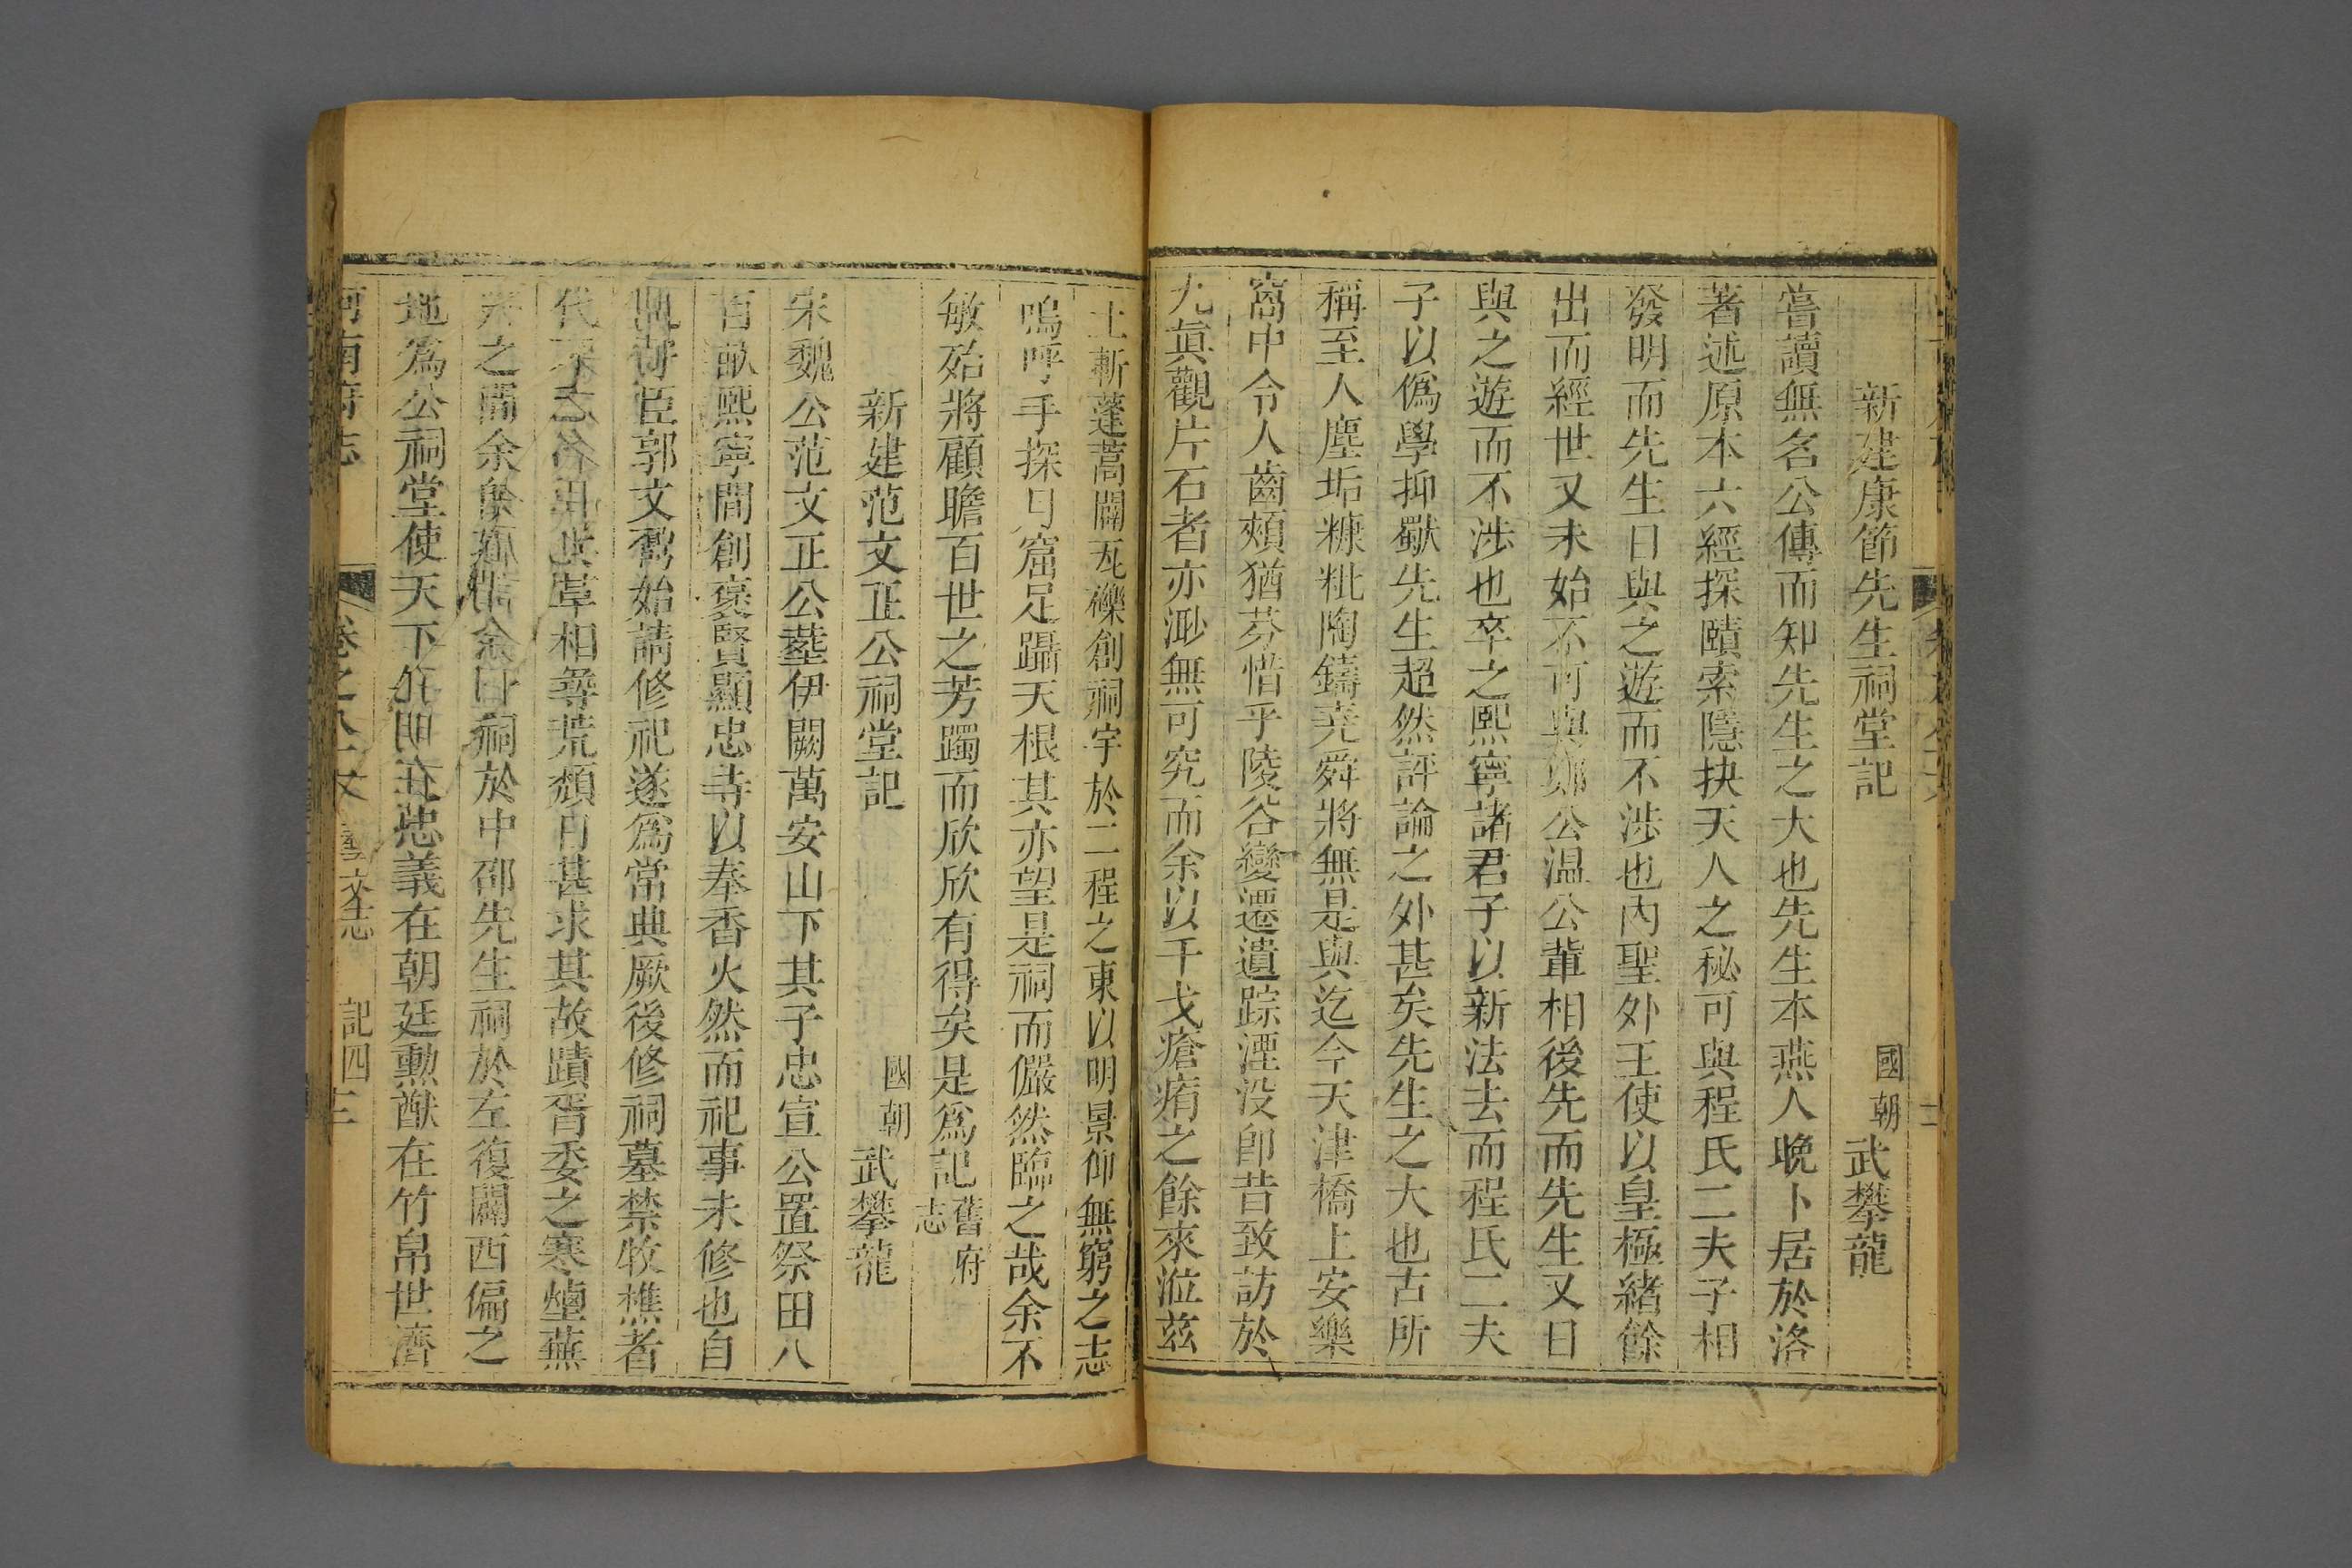 新建康節先生祠堂記 國朝武攀龍
嘗讀無名公傳而知先生之大也先生本燕人晚卜居於洛
著述原本六經探賾索隱抉天人之秘可與程氏二夫子相
發明而先生日與之遊而不涉也內聖外王使以皇極緒餘
出而經世又未始不可與鄭公溫公輩相後先而先生又日
與之遊而不涉也卒之熙寧諸君子以新法去而程氏二夫
子以僞學抑獨先生超然評論之外甚矣先生之大也古所
稱至人塵垢糠粃陶鑄堯舜將無是與迄今天津橋上安樂
窩中令人齒頰猶芬惜乎陵谷變遷遺踪湮没卽昔致訪於
九眞觀片石者亦渺無可究而余以干戈瘡痏之餘來涖茲
土斬蓬蒿闢瓦礫創祠宇於二程之東以明景仰無窮之志
嗚呼手探月窟足躡天根其亦望是祠而儼然臨之哉余不
敏殆將顧瞻百世之芳躅而欣欣有得矣是爲記舊府志
新建范文正公祠堂記 國朝武攀龍
宋魏公范文正公塟伊闕萬安山下其子忠宣公置祭田八
百畝熙寧間創褒賢顯忠寺以奉香火然而祀事未修也自
臣郭文 始請修祀遂爲當典厥後修祠墓禁牧樵者
代不 草相尋荒頹日甚求其故蹟胥委之寒煙蕪
之 余 祠於中邵先生祠於左復闢西偏之
地爲公祠堂使天下 忠義在朝廷勲猷在竹帛世濟
河南府志 卷之八十 藝文志 記四